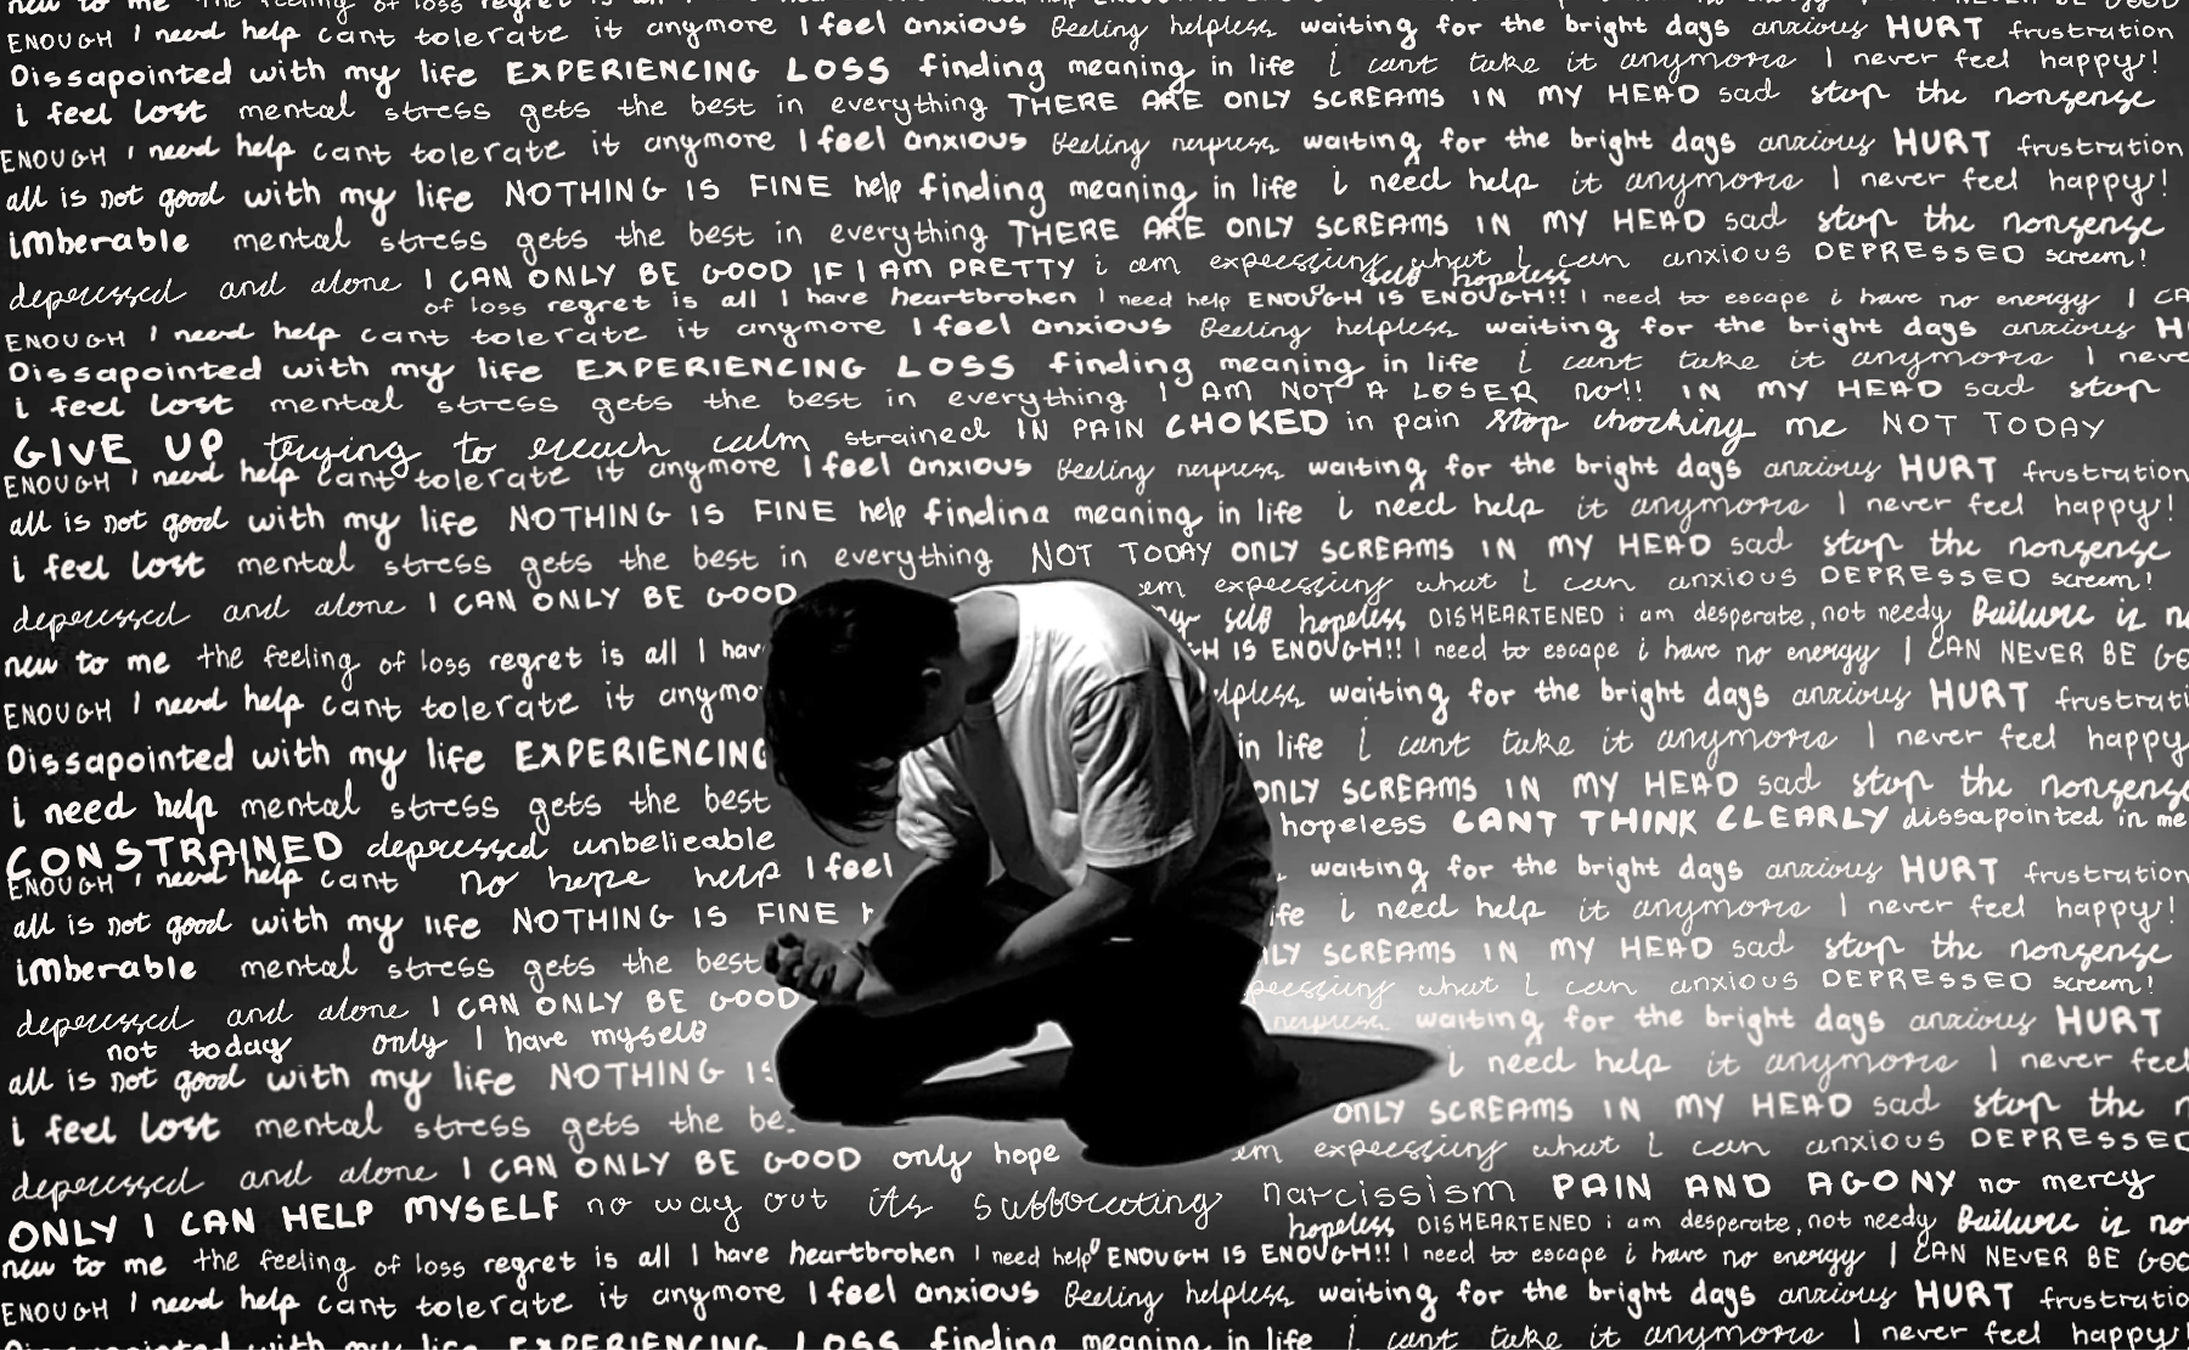 new to me the feeling of loss regret is all I
ENOUGH I need help cant tolerate it anymore I feel anxious Feeling helpless waiting for the bright days anxious HURT frustration
Dissapointed with my life EXPERIENCING LOSS finding meaning in life i cant take it anymore I never feel happy!
i feel lost mental stress gets the best in everything THERE ARE ONLY SCREAMS IN MY HEAD sad stop the nonsense
ENOUGH I need help cant tolerate it anymore I feel anxious Feeling waiting for the bright days anxious HURT frustration
all is not good with my life NOTHING IS FINE help finding meaning in life i need help it anymore I never feel happy!
imberable mental stress gets the best in everything THERE ARE ONLY SCREAMS IN MY HEAD sad stop the nonsense
depressed and alone I CAN ONLY BE GOOD IF I AM PRETTY i am expressing what I can anxious DEPRESSED screem!
self hopeless
of loss regret is all I have heartbroken I need help ENOUGH IS ENOUGH!! I need to escape i have no energy I CA
ENOUGH I need help cant tolerate it anymore I feel anxious Feeling helpless waiting for the bright days anxious H
Dissapointed with my life EXPERIENCING LOSS finding meaning in life i cant take it anymore I neve
i feel lost mental stress gets the best in everything I AM NOT A LOSER no!! IN MY HEAD sad stop
GIVE UP trying to reach calm strained IN PAIN CHOKED in pain stop chocking me NOT TODAY
ENOUGH I need help cant tolerate it anymore I feel anxious Feeling waiting for the bright days anxious HURT frustration
all is not good with my life NOTHING IS FINE help finding meaning in life i need help it anymore I never feel happy!
i feel lost mental stress gets the best in everything NOT TODAY ONLY SCREAMS IN MY HEAD sad stop the nonsense
depressed and alone I CAN ONLY BE GOOD em expressing what I can anxious DEPRESSED screem!
my self hopeless DISHEARTENED i am desperate, not needy Failure is n
new to me the feeling of loss regret is all I hav H IS ENOUGH!! I need to escape i have no energy I CAN NEVER BE GO
ENOUGH I need help cant tolerate it anymo lpless waiting for the bright days anxious HURT frustrati
Dissapointed with my life EXPERIENCING in life i cant take it anymore I never feel happy
i need help mental stress gets the best ONLY SCREAMS IN MY HEAD sad stop the nonsense
hopeless CANT THINK CLEARLY dissapointed in me
CONSTRAINED depressed unbelieable
ENOUGH I need help cant no hope help I feel waiting for the bright days anxious HURT frustration
all is not good with my life NOTHING IS FINE ife i need help it anymore I never feel happy!
imberable mental stress gets the best LY SCREAMS IN MY HEAD sad stop the nonsense
depressed and alone I CAN ONLY BE GOOD pressing what I can anxious DEPRESSED screem!
not today only I have myself waiting for the bright days anxious HURT
all is not good with my life NOTHING IS i need help it anymore I never feel
i feel lost mental stress gets the be ONLY SCREAMS IN MY HEAD sad stop the n
depressed and alone I CAN ONLY BE GOOD only hope em expressing what I can anxious DEPRESSED
ONLY I CAN HELP MYSELF no way out its suffocating narcissism PAIN AND AGONY no mercy
hopeless DISHEARTENED i am desperate, not needy Failure is no
new to me the feeling of loss regret is all I have heartbroken I need help ENOUGH IS ENOUGH!! I need to escape i have no energy I CAN NEVER BE GOO
ENOUGH I need help cant tolerate it anymore I feel anxious Feeling helpless waiting for the bright days anxious HURT frustratio
Dissapointed with my life EXPERIENCING LOSS finding meaning in life i cant take it anymore I never feel happy